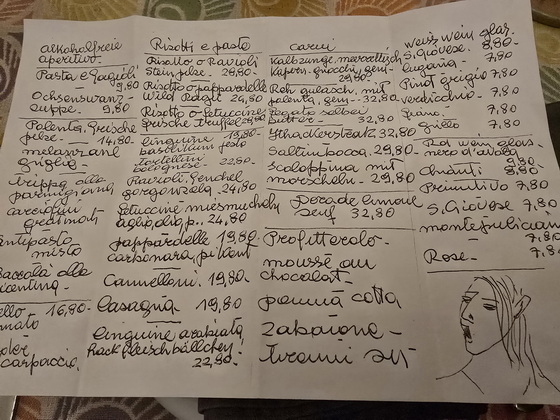 alkoholfreie
aperitivo.
Pasta e Fagioli
9,80
Ochsenswanz-
suppe. 9,80
Polenta, Grische
pilze. 14,80
melanzane
griglia
trippa alla
parmig
carciofini
gratinati
antipasto
misto
Baccala alla
vicentina.
16,80-
carpaccio
Risotti e pasta
Risotto o Ravioli
Steinpilze. 28,80-
Risotto o pappardelle
Wild Ragu 24,80
Risotto o Fetuccine
Grische Trüffel 29,80
linguine 19,80-
basilikum pesto
Tortellini
bolognese- 22,80-
Ravioli, Fenchel
gorgonzola-24,80
Fetuccine miesmuscheln
aglio,olio,p.. 24,80
pappardelle 19,80-
carbonara, pikant
Cannelloni. 19,80-
lasagna 19,80
linguine arabiata
hackfleischbällchen-
22,80-
carni
Kalbzunge, meerettisch
Kapern, gnocchi, gem-
29,80-
Reh gulasch, mit
polenta, gem-- 32,80
Fegato salbei
Butter 32,80
Hackersteak 32,80
Saltimbocca. 29,80-
Scaloppina mit
morscheln- 29,80
Dorade limone
senf 32,80
Profitterolo-
mousse au
chocolat-
panna cotta
Zabaione-
Tirami sù
weiss wein glas.
S.Giovese. 8,80-
lugana- 7,80
Pinot grigio 7,80
verdicchio- 7,80
7,80
grillo 7,80
Rot wein glas.
nero d'avola
9,80
chianti 8,80
Primitivo 7,80
S.Giovese 7,80
montepulciano
7,80
Rose- 7,8